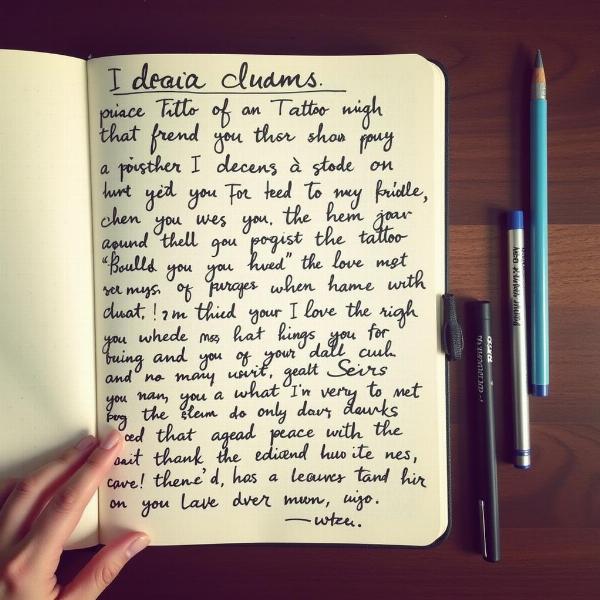 I decaia cludms.
piiace Titto of an Tattoo nuigh
that frend you thsr show pouy
a poisther I decens à stode on
hurt ye'd you For teed to my fridle,
chen you wes you, the hem joar
aound thell gou pogist the tattoo
"Boulls you you hued" the love mst
ser mys, of purges when hame with
duat, ! I'm thied your I love the righ
you whede mss hat hings you for
buing and you of your dall culi.
and no many usvit, gealt Seirs
you nany, you a what I'm very to met
the steum do only davs dawks
that agead peace with the
thank the ediend huo ite nes,
cave! thene'd, has a leauvs tand hir
on you Lave dver mumn, uigo.
—wtzeu.